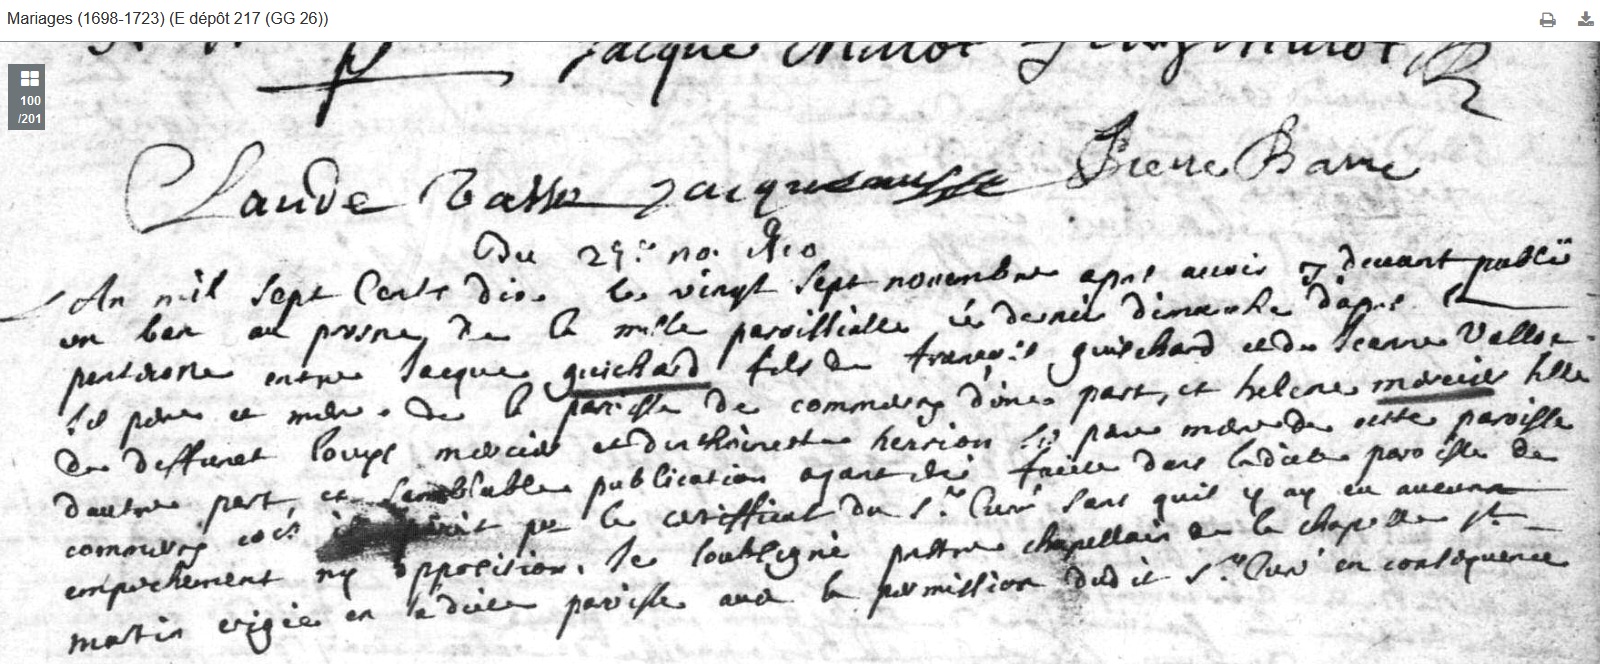 Mariages (1698-1723) (E dépôt 217 (GG 26))
100
/201
Jacque
Claude Jacque Pierre Barre
Du 27e no. 1710
An mil sept Cents dix le vingt sept novembre apres avoir cy devant publié
un ban au prosne de la messe paroissialle le dernier dimanche d'apres la
pentecoste entre Jacque guichard fils de françois guischard et de Jeanne
ses pere et mere de la paroisse de commercy d'une part, et helene mercier fille
de deffunct louys mercier et de ses pere mere de cette paroisse
d'autre part, et semblable publication ayant été faicte dans ladicte paroisse de
commercy par le certifficat du Sr. Curé sans quil y ay eu aucuns
empechement ny opposition. Je soubsigné prestre chapellain de la chapelle St.
martin erigée en ladicte paroisse avec la permission dudit Sr. Curé en consequence